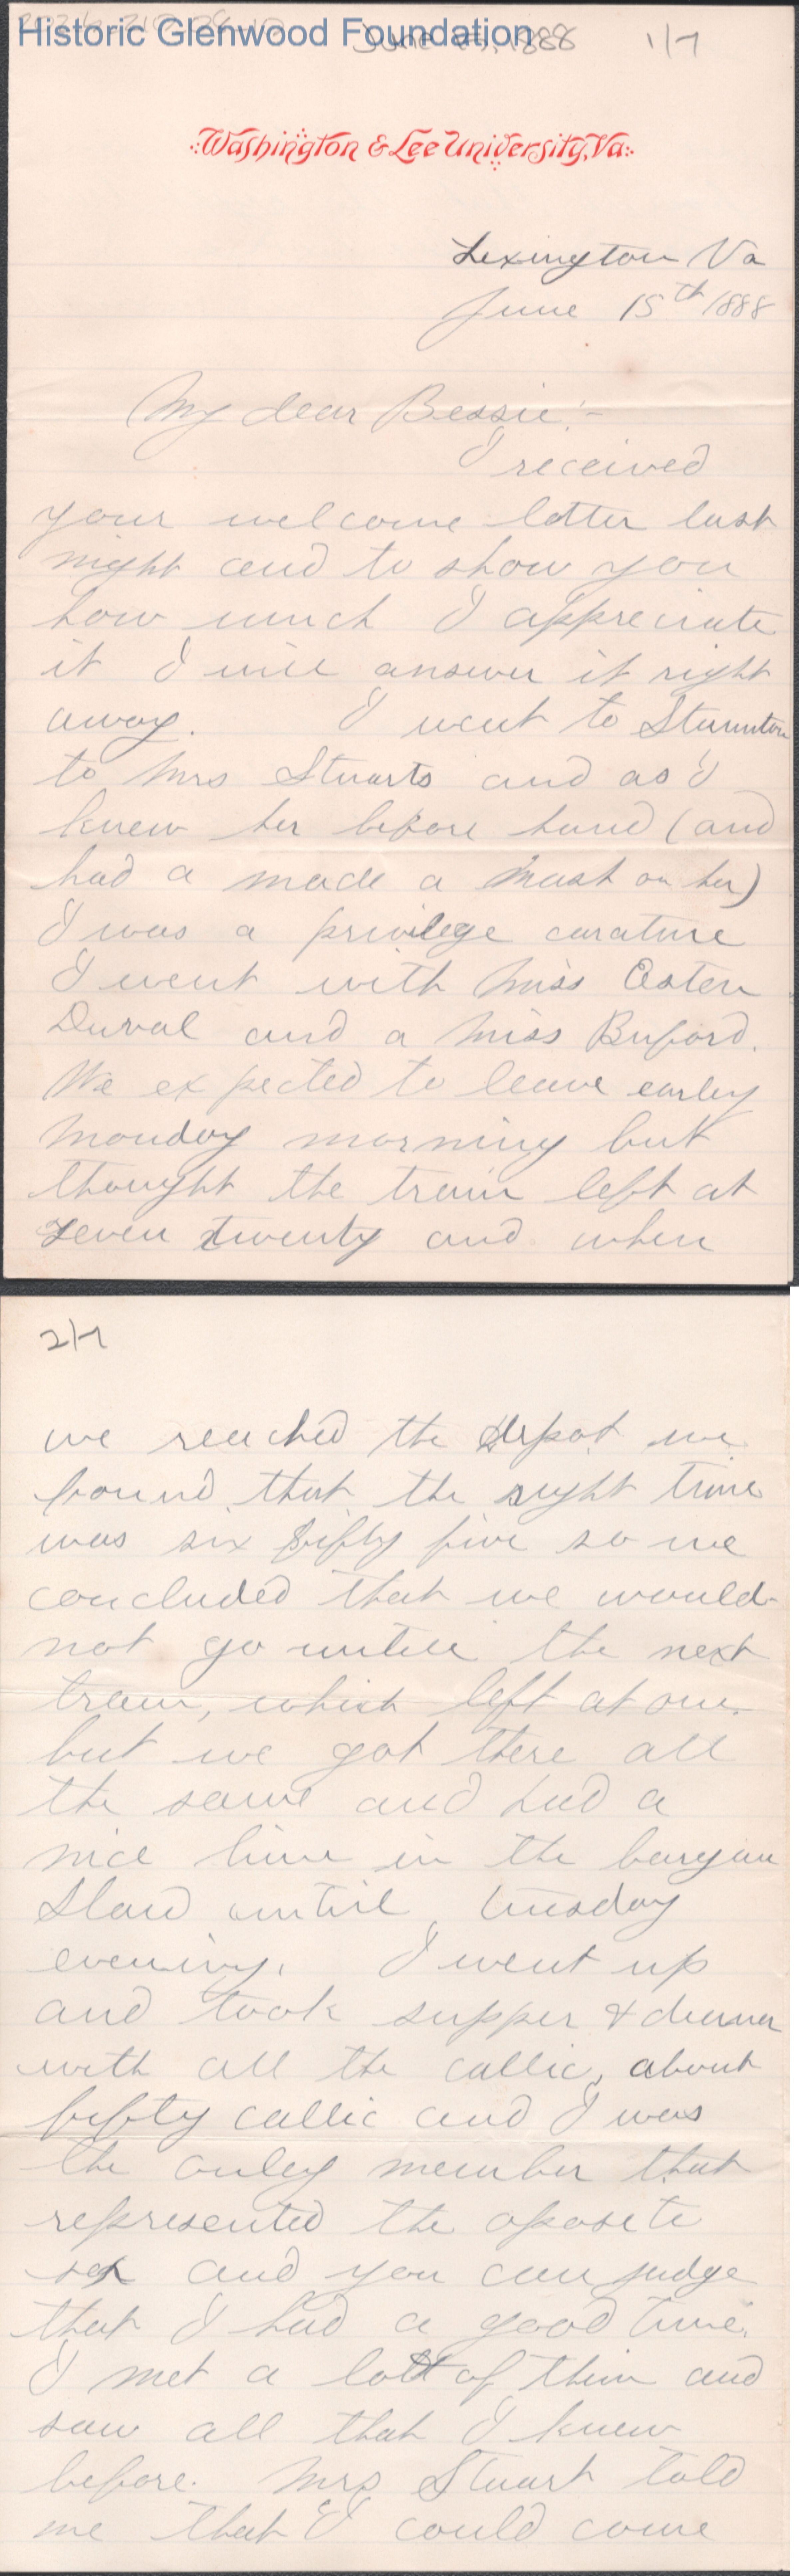 Historic Glenwood Foundation
June 15, 1888 1/7
Washington & Lee University, Va.
Lexington Va
June 15th 1888
My dear Bessie:-
I received
your welcome letter last
night and to show you
how much I appreciate
it I will answer it right
away. I went to Staunton
to Mrs Stuarts and as I
knew her before hand (and
had a made a mash on her)
I was a privilege curature
I went with Miss
Duval and a Miss Buford.
We expected to leave earley
Monday morning but
thought the train left at
seven twenty and when
2/7
we reached the depot we
found that the right time
was six fifty five so we
concluded that we would
not go untill the next
train, which left at one.
but we got there all
the same and had a
nice time in the
Staid until Tuesday
evening. I went up
and took supper & dinner
with all the callic, about
fifty callic and I was
the onley member that
represented the oposite
sex and you can judge
that I had a good time.
I met a lott of them and
saw all that I knew
before. Mrs Stuart told
me that I could come